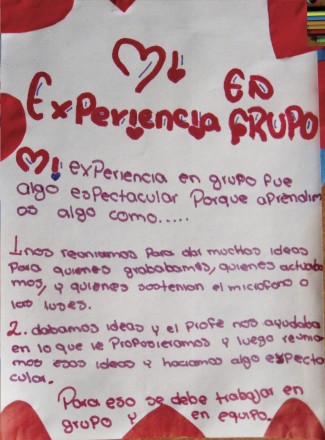 Mi
Experiencia EN GRUPO
Mi experiencia en grupo fue
algo espectacular Porque aprendim
os algo como.....
1. nos reuniamos Para dar muchas ideas
Para quienes grababamos, quienes actuaba
mos, y quienes sostenian el microfono o
las luses.
2. dabamos ideas y el Profe nos ayudaba
en lo que le Proposieramos y luego reunia
mos esas ideas y haciamos algo especta
cular.
Para eso se debe trabajar en
grupo y en equipo.